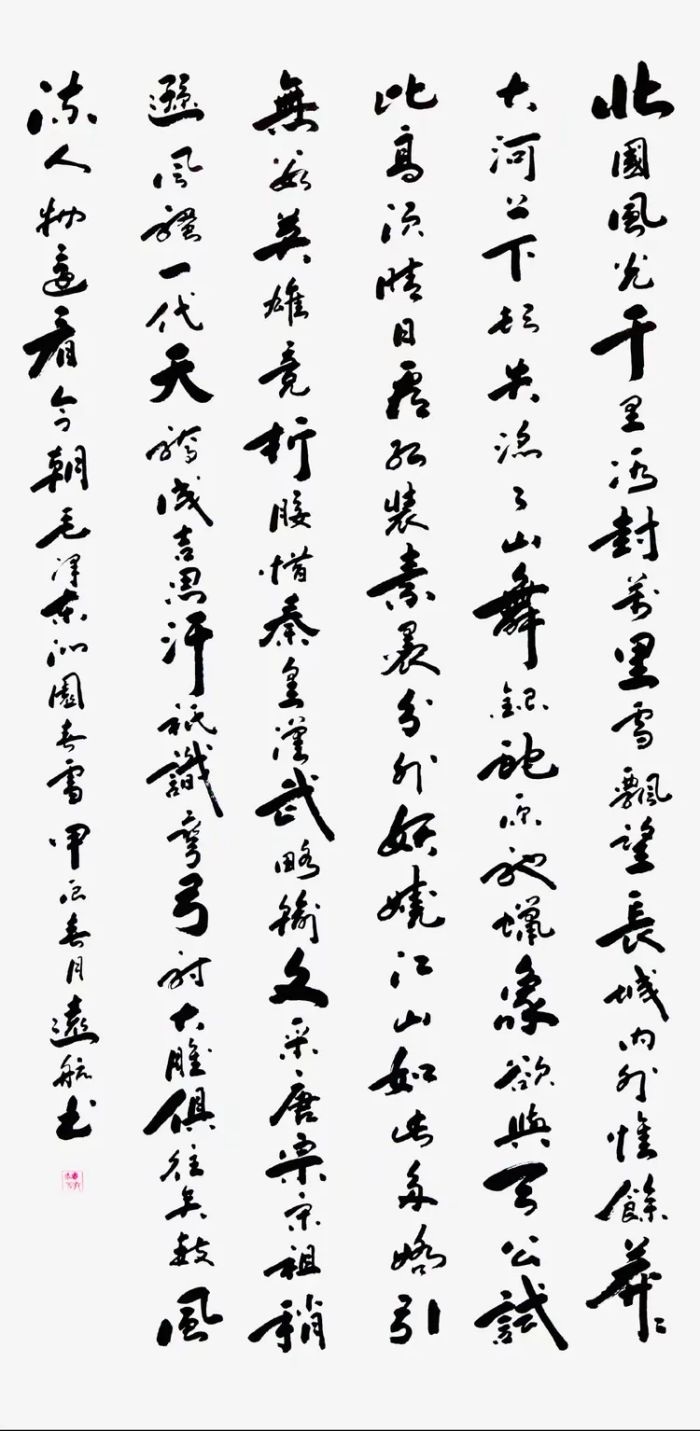 北國風光千里冰封萬里雪飄望長城內外惟餘莽々
大河上下頓失滔々山舞銀蛇原馳蠟象欲與天公試
比高須晴日看紅裝素裹分外妖嬈江山如此多嬌引
無數英雄竞折腰惜秦皇漢武略輸文采唐宗宋祖稍
遜風騷一代天驕成吉思汗祇識彎弓射大雕俱往矣數風
流人物還看今朝毛澤東沁園春雪甲辰春月遠航书